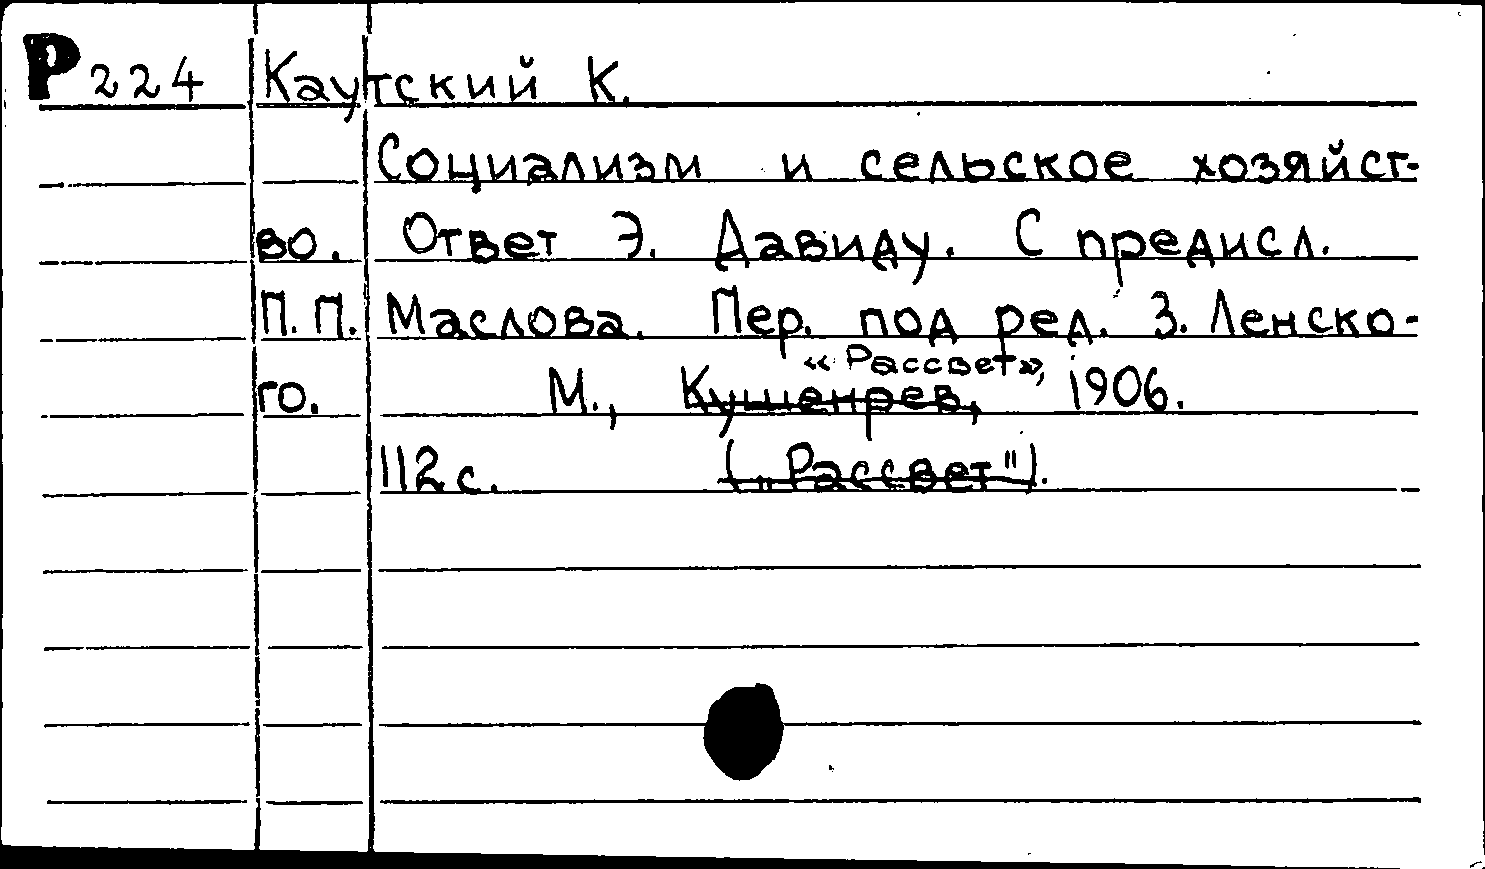 Р 224 Каутский К.
Социализм и сельское хозяйст-
во. Ответ Э. Давиду. С предисл.
П.П. Маслова. Пер. под ред. З. Ленско-
«Рассвет»,
го. М., Кушенрев, 1906.
112 с. („Рассвет").